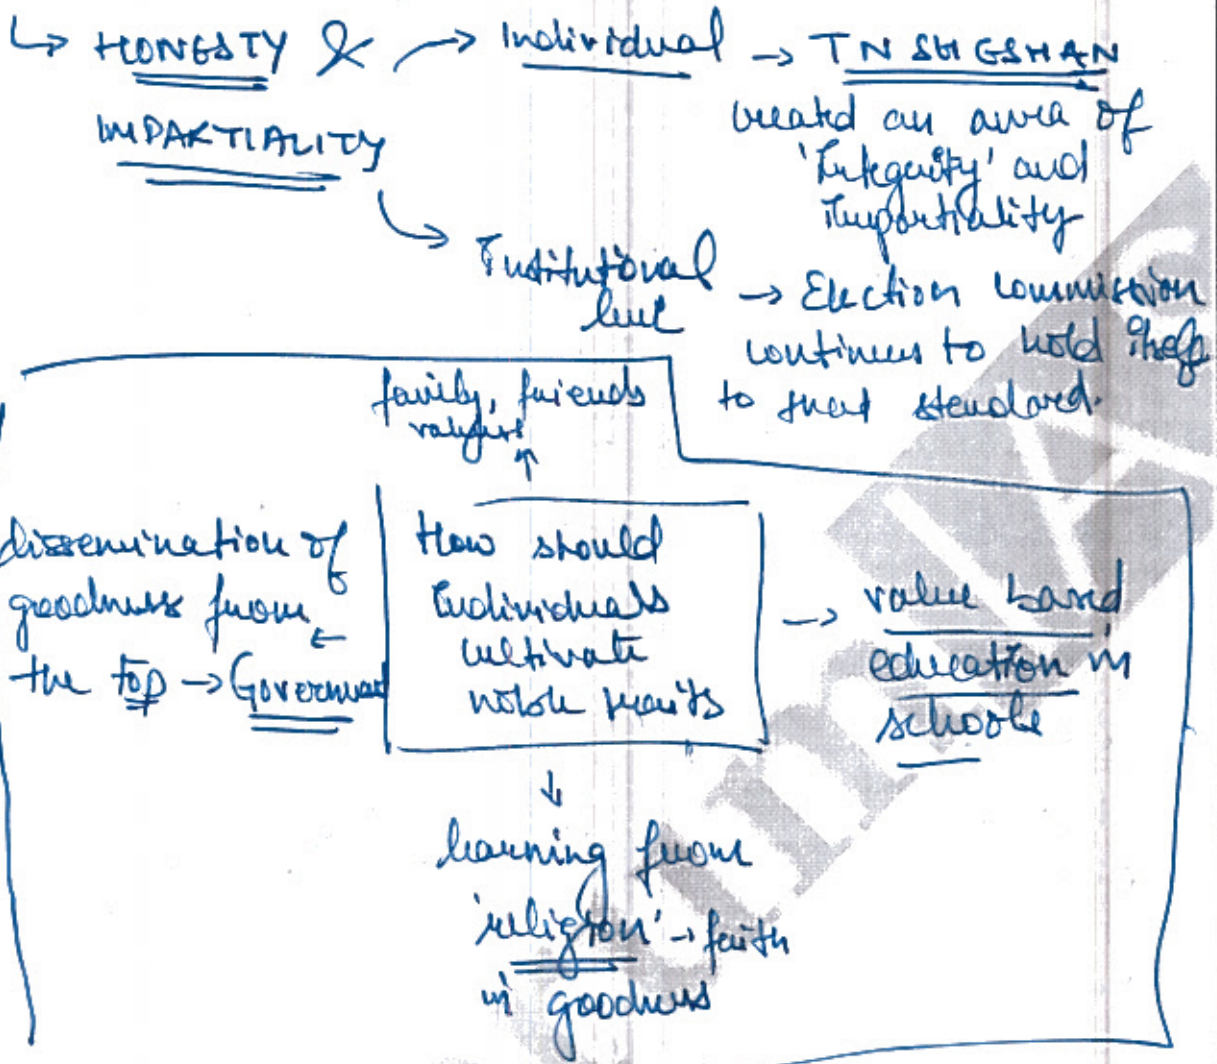 ↳ HONESTY & → Individual → TN SHESHAN
IMPARTIALITY
created an aura of
'Integrity' and
Impartiality
→ Institutional
level → Election Commission
continues to hold itself
to that standard.
family, friends
values
↑
dissemination of
goodness from ←
the top → Governmen
How should
Individuals
cultivate
noble traits
→ value based
education in
schools
↓
learning from
'religion' → faith
in goodness